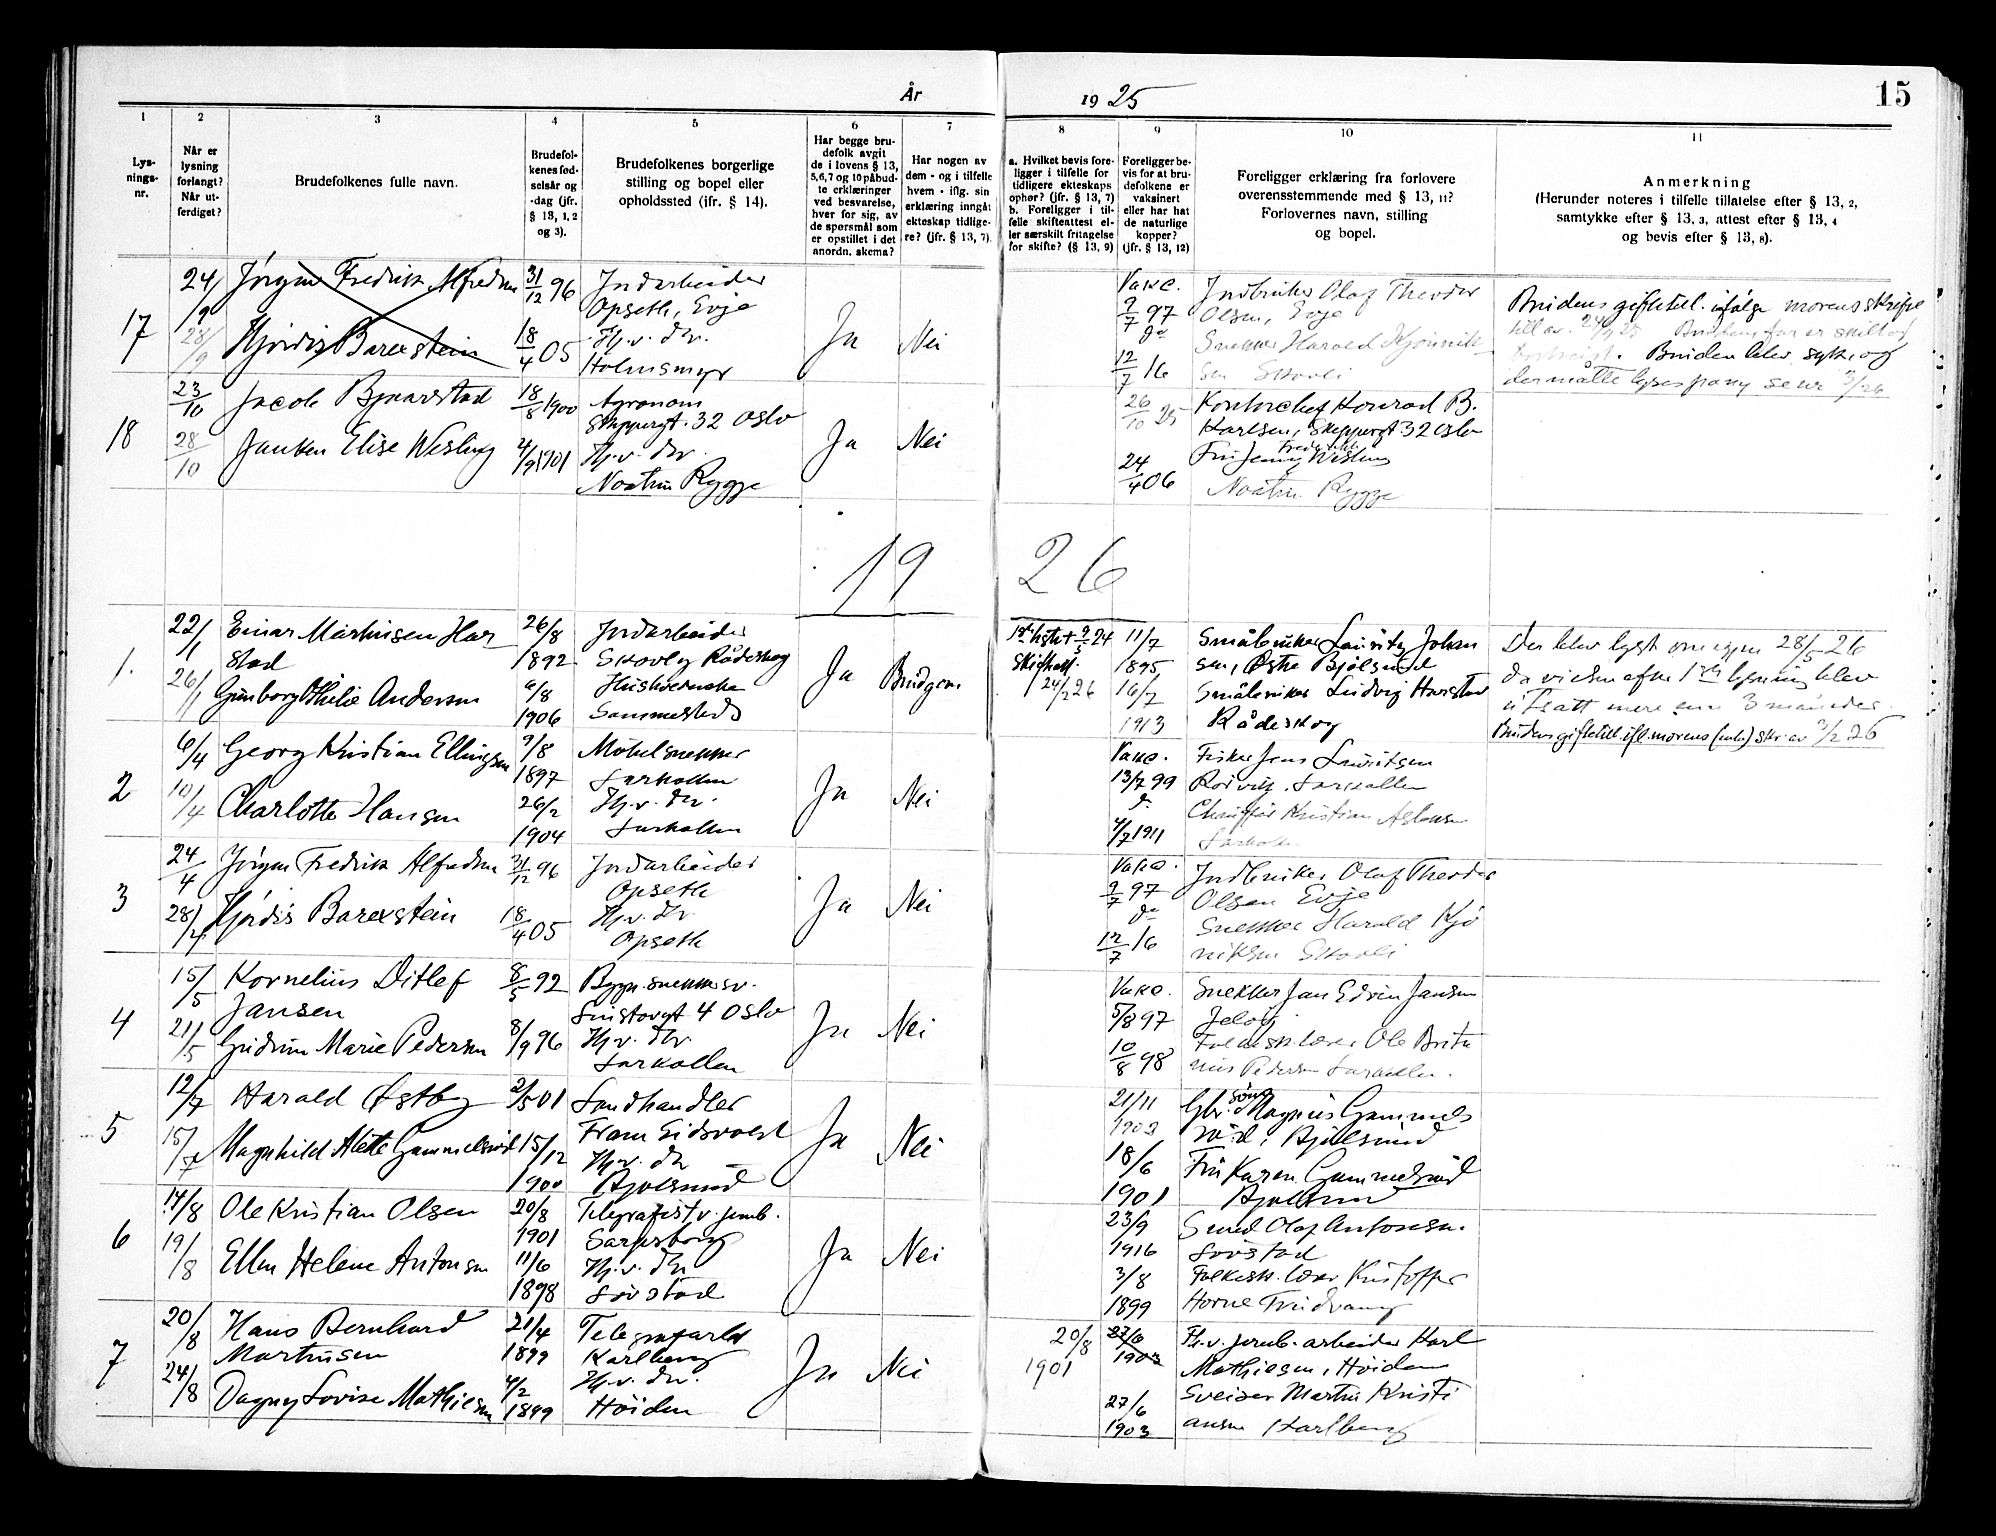 År 1925
15
1
2
3
4
5
6
7
8
9
10
11
Lys-
nings-
nr.
Når er
lysning
forlangt?
Når ut-
ferdiget?
Brudefolkenes fulle navn.
Brudefol-
kenes fød-
selsår og
-dag (jfr.
§ 13, 1, 2
og 3).
Brudefolkenes borgerlige
stilling og bopel eller
opholdssted (ifr. § 14).
Har begge bru-
defolk avgit
de i lovens § 13,
5,6,7 og 10 påbud-
te erklæringer
ved besvarelse,
hver for sig, av
de spørsmål som
er opstillet i det
anordn. skema?
Har nogen av
dem - og i tilfelle
hvem - iflg. sin
erklæring inngåt
ekteskap tidlige-
re? (jfr. § 13, 7).
a. Hvilket bevis fore-
ligger i tilfelle for
tidligere ekteskaps
ophør? (jfr. § 13, 7)
b. Foreligger i til-
felle skifteattest el-
ler særskilt fritagelse
for skifte? (§ 13, 9)
Foreligger be-
vis for at bru-
defolkene er
vaksinert
eller har hat
de naturlige
kopper?
(jfr. § 13, 12)
Foreligger erklæring fra forlovere
overensstemmende med § 13, 11?
Forlovernes navn, stilling
og bopel.
Anmerkning
(Herunder noteres i tilfelle tillatelse efter § 13, 2,
samtykke efter § 13, 3, attest efter § 13, 4
og bevis efter § 13, 8).
17
24/9
28/9
Jørgen Fredrik Alfredsen
Hjørdis Barexstein
31/12 96
18/4 05
Jordarbeider
Opseth, Evje
Hj.v. dtr.
Holmsmyr
Ja
Nei
Vakc.
9/7 97
do
12/7 16
Jordbruker Olaf Theodor
Olsen, Evje
Snekker Harald Kjønnik-
sen Skovli
Brudens giftetill. ifølge morens skriftl.
till av. 24/9 25
Bruden blev syk, og
der måtte lyses paany senere
18
23/10
28/10
Jacob Bjaarstad
Elise Wesling
18/8 1900
4/9 1901
Agronom
Skippergt. 32 Oslo
Hj.v. dtr.
Noatun Rygge
Ja
Nei
26/10 25
24/4 06
Kontorchef Konrad B.
Karlsen, Skippergt 32 Oslo
Fru Jenny Wesling
Noatun Rygge
1926
1.
22/1
26/1
Einar Martinsen Har
stad
Gunborg Othilie Andersen
26/8
1892
6/8
1906
Jordarbeider
Skovly Råderskog
Husholderske
Sammesteds
Ja
Brudgom
24/2 26
11/7
1895
16/7
1913
Småbruker Lauritz Johan
sen, Østre Bjølsund
Småbruker Ludvig Harstad
Råderskog
Der blev lyst om igjen 28/5 26
da vielsen efter 1ste lysning blev
utsatt mere enn 3 måneder.
Brudens giftetill. ifl. morens (enke) skr. av 3/2 26
2
6/4
10/4
Georg Kristian Ellingsen
Charlotte Hansen
9/8
1897
26/2
1904
Møbelsnekker
Larkollen
Hj.v. dtr.
Larkollen
Ja
Nei
Vakc.
13/7 99
do
4/7 1911
Fisker Jens Lauritsen
Rørvik. Larkollen
Chauffør Kristian
3
24/4
28/4
Jørgen Fredrik Alfredsen
Hjørdis Barexstein
31/12 96
18/4 05
Jordarbeider
Opseth
Hj.v. dtr
Opseth
Ja
Nei
Vakc.
9/7 97
do
12/7 16
Jordbruker Olaf Theodor
Olsen Evje
Snekker Harald Kjø
niksen Skovli
4
15/5
21/5
Kornelius Ditlef
Jansen
Gudrun Marie Pedersen
8/5 92
8/9 96
Bygn.snekkersv.
4 Oslo
Hj.v. dtr
Larkollen
Ja
Nei
Vakc.
5/8 97
10/8 98
Snekker Jan Edvin Jansen
Jeløy
Folkesk.lærer Ole Britu
nius Pedersen Larkollen.
5
12/7
15/7
Harald Østby
Magnhild Alette Gammelsrød
2/5 01
15/12
1900
Landhandler
Fram Eidsvold
Hj.v. dtr
Bjølsund
Ja
Nei
21/11
1903
18/6
1901
Gbr.sønn Magnus Gammels
rød, Bjølsund
Fru Karen Gammelsrød
Bjølsund
6
14/8
19/8
Ole Kristian Olsen
Ellen Helene Antonsen
20/8
1901
11/6
1898
Telegrafist v. jernb.
Sarpsborg
Hj.v. dtr
Løvstad
Ja
Nei
23/9
1916
3/8
1899
Smed Olaf Antonsen.
Løvstad
Folkesk.lærer Kristoffer
Horne Fredvang
7
20/8
24/8
Hans Bernhard
Martinsen
Dagny Lovise Mathiesen
21/4
1899
4/2
1899
Telegrafarb
Karlberg
Hj.v. dtr.
Høiden
Ja
Nei
20/8
1901
27/6
1903
27/6
1903
Fh.v. jernb.arbeider Karl
Mathiesen, Høiden
Sveiser Martin Kristi
ansen Karlberg